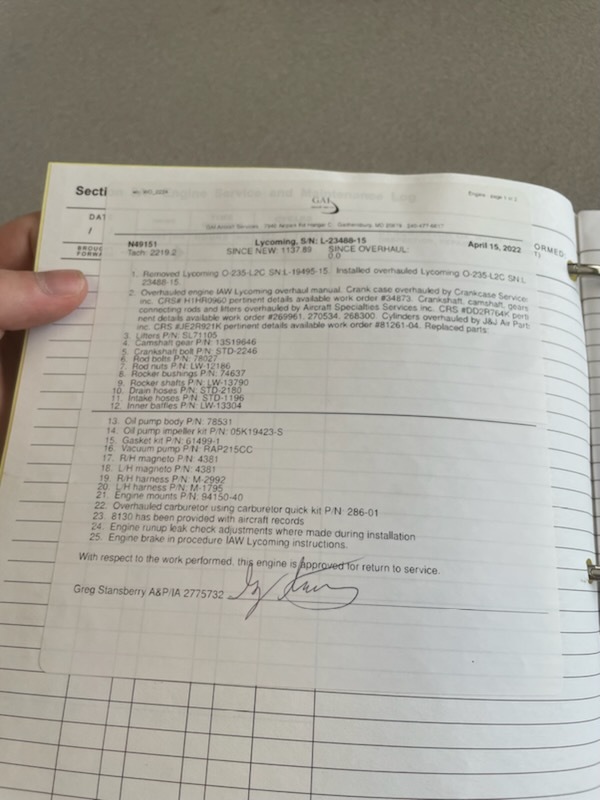 Section Engine Service and Maintenance Log
Engine - page 1 of 2
GAI
DAT
Gai Aircraft Services 7940 Airpark Rd Hangar C Gaithersburg, MD 20879
BROUG
FORWA
ORMED
N49151 Lycoming, S/N: L-23488-15 April 15, 2022
Tach: 2219.2 SINCE NEW: 1137.89 SINCE OVERHAUL:
0.0
1. Removed Lycoming O-235-L2C SN L-19495-15. Installed overhauled Lycoming O-235-L2C SN L
23488-15.
2. Overhauled engine IAW Lycoming overhaul manual. Crank case overhauled by Crankcase Service
inc. CRS# H1HR0960 pertinent details available work order #34873. Crankshaft, camshaft, gears
connecting rods and lifters overhauled by Aircraft Specialties Services Inc. CRS #DD2R764K perti
nent details available work order #269961, 270534, 268300. Cylinders overhauled by J&J Air Part
inc. CRS #JE2R921K pertinent details available work order #81261-04. Replaced parts:
3. Lifters P/N: SL71105
4. Camshaft gear P/N: 13S19646
5. Crankshaft bolt P/N: STD-2246
6. Rod bolts P/N: 78027
7. Rod nuts P/N: LW-12186
8. Rocker bushings P/N: 74637
9. Rocker shafts P/N: LW-13790
10. Drain hoses P/N: STD-2180
11. Intake hoses P/N: STD-1196
12. Inner baffles P/N: LW-13304
13. Oil pump body P/N: 78531
14. Oil pump impeller kit P/N: 05K19423-S
15. Gasket kit P/N: 61499-1
16. Vacuum pump P/N: RAP215CC
17. R/H magneto P/N: 4381
18. L/H magneto P/N: 4381
19. R/H harness P/N: M-2992
20. L/H harness P/N: M-1795
21. Engine mounts P/N: 94150-40
22. Overhauled carburetor using carburetor quick kit P/N: 286-01
23. 8130 has been provided with aircraft records
24. Engine runup leak check adjustments where made during installation
25. Engine brake in procedure IAW Lycoming instructions.
With respect to the work performed, this engine is approved for return to service.
Greg Stansberry A&P/IA 2775732